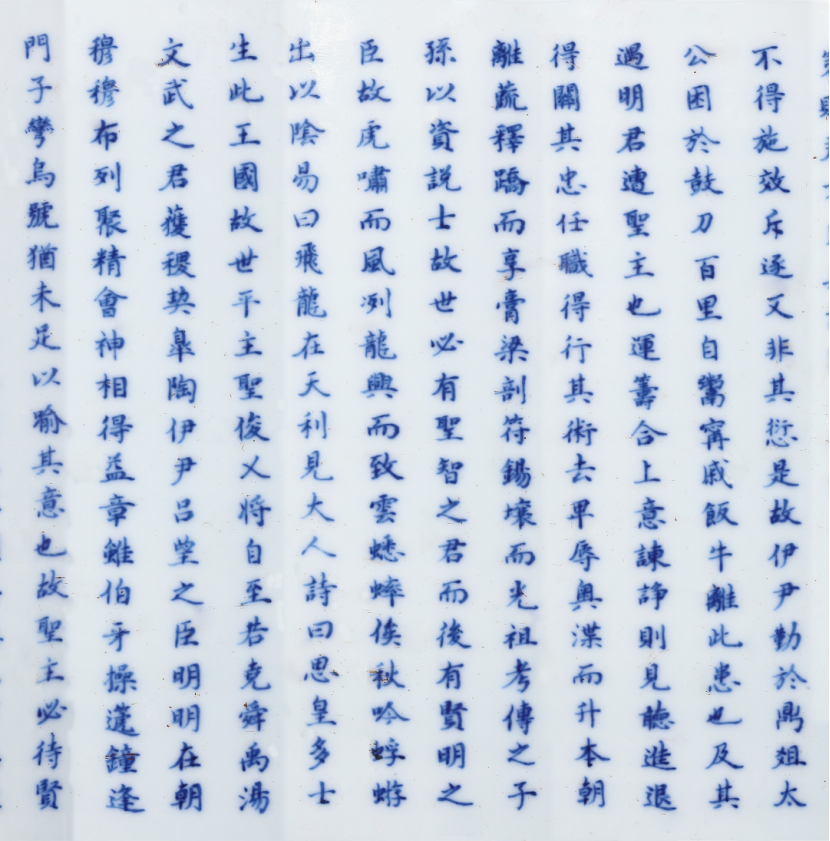 不得施效斥逐又非其愆是故伊尹勤於鼎爼太
公困於鼓刀百里自鬻甯戚飯牛離此患也及其
遇明君遭聖主也運籌合上意諫諍則見聽進退
得關其忠任職得行其術去卑辱奥渫而升本朝
離蔬釋蹻而享膏梁剖符錫壤而光祖考傳之子
孫以資説士故世必有聖智之君而後有賢明之
臣故虎嘯而風冽龍興而致雲蟋蟀俟秋吟蜉蝣
出以陰易曰飛龍在天利見大人詩曰思皇多士
生此王國故世平主聖俊乂将自至若堯舜禹湯
文武之君獲稷契臯陶伊尹吕望之臣明明在朝
穆穆布列聚精會神相得益章雖伯牙操遞鐘逄
門子彎烏號猶未足以喻其意也故聖主必待賢